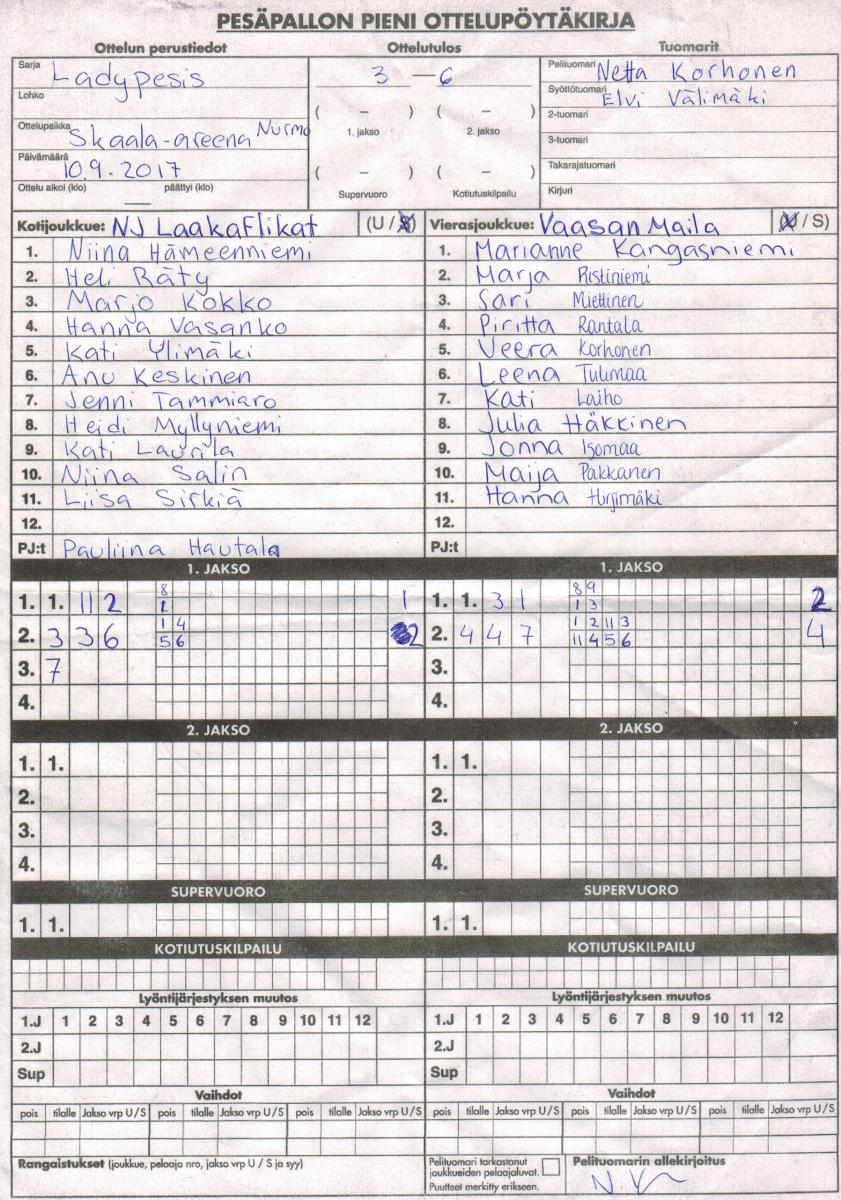 PESÄPALLON PIENI OTTELUPÖYTÄKIRJA
Ottelun perustiedot
Ottelutulos
Tuomarit
Sarja Ladypesis
Lohko
Ottelupaikka Skaala-areena Nurmo
Päivämäärä 10.9.2017
Ottelu alkoi (klo) päättyi (klo)
3 – 6
( – ) ( – )
1. jakso 2. jakso
( – ) ( – )
Supervuoro Kotiutuskilpailu
Pelituomari Netta Korhonen
Syöttötuomari Elvi Välimäki
2-tuomari
3-tuomari
Takarajatuomari
Kirjuri
Kotijoukkue: NJ LaakaFlikat (U / S)
1. Niina Hämeenniemi
2. Heli Räty
3. Marjo Kokko
4. Hanna Vasanko
5. Kati Ylimäki
6. Anu Keskinen
7. Jenni Tammiaro
8. Heidi Myllyniemi
9. Kati Laurila
10. Niina Salin
11. Liisa Sirkiä
12.
PJ:t Pauliina Hautala
Vierasjoukkue: Vaasan Maila (U / S)
1. Marianne Kangasniemi
2. Marja Ristiniemi
3. Sari Miettinen
4. Piritta Rantala
5. Veera Korhonen
6. Leena Tulimaa
7. Kati Laiho
8. Julia Häkkinen
9. Jonna Isomaa
10. Maija Pakkanen
11. Hanna Hirsimäki
12.
PJ:t
1. JAKSO
8
1. 1. 11 2 1
1 4
2. 3 3 6 5 6 2
3. 7
4.
1. JAKSO
8 9
1. 1. 3 1 1 3 2
1 2 11 3
2. 4 4 7 11 4 5 6 4
3.
4.
2. JAKSO
1. 1.
2.
3.
4.
2. JAKSO
1. 1.
2.
3.
4.
SUPERVUORO
1. 1.
SUPERVUORO
1. 1.
KOTIUTUSKILPAILU
KOTIUTUSKILPAILU
Lyöntijärjestyksen muutos
1.J 1 2 3 4 5 6 7 8 9 10 11 12
2.J
Sup
Lyöntijärjestyksen muutos
1.J 1 2 3 4 5 6 7 8 9 10 11 12
2.J
Sup
Vaihdot
pois tilalle Jakso vrp U / S pois tilalle Jakso vrp U / S pois tilalle Jakso vrp U / S
Vaihdot
pois tilalle Jakso vrp U / S pois tilalle Jakso vrp U / S pois tilalle Jakso vrp U / S
Rangaistukset (joukkue, pelaaja nro, jakso vrp U / S ja syy)
Pelituomari tarkastanut
joukkueiden pelaajaluvat.
Puutteet merkitty erikseen.
Pelituomarin allekirjoitus